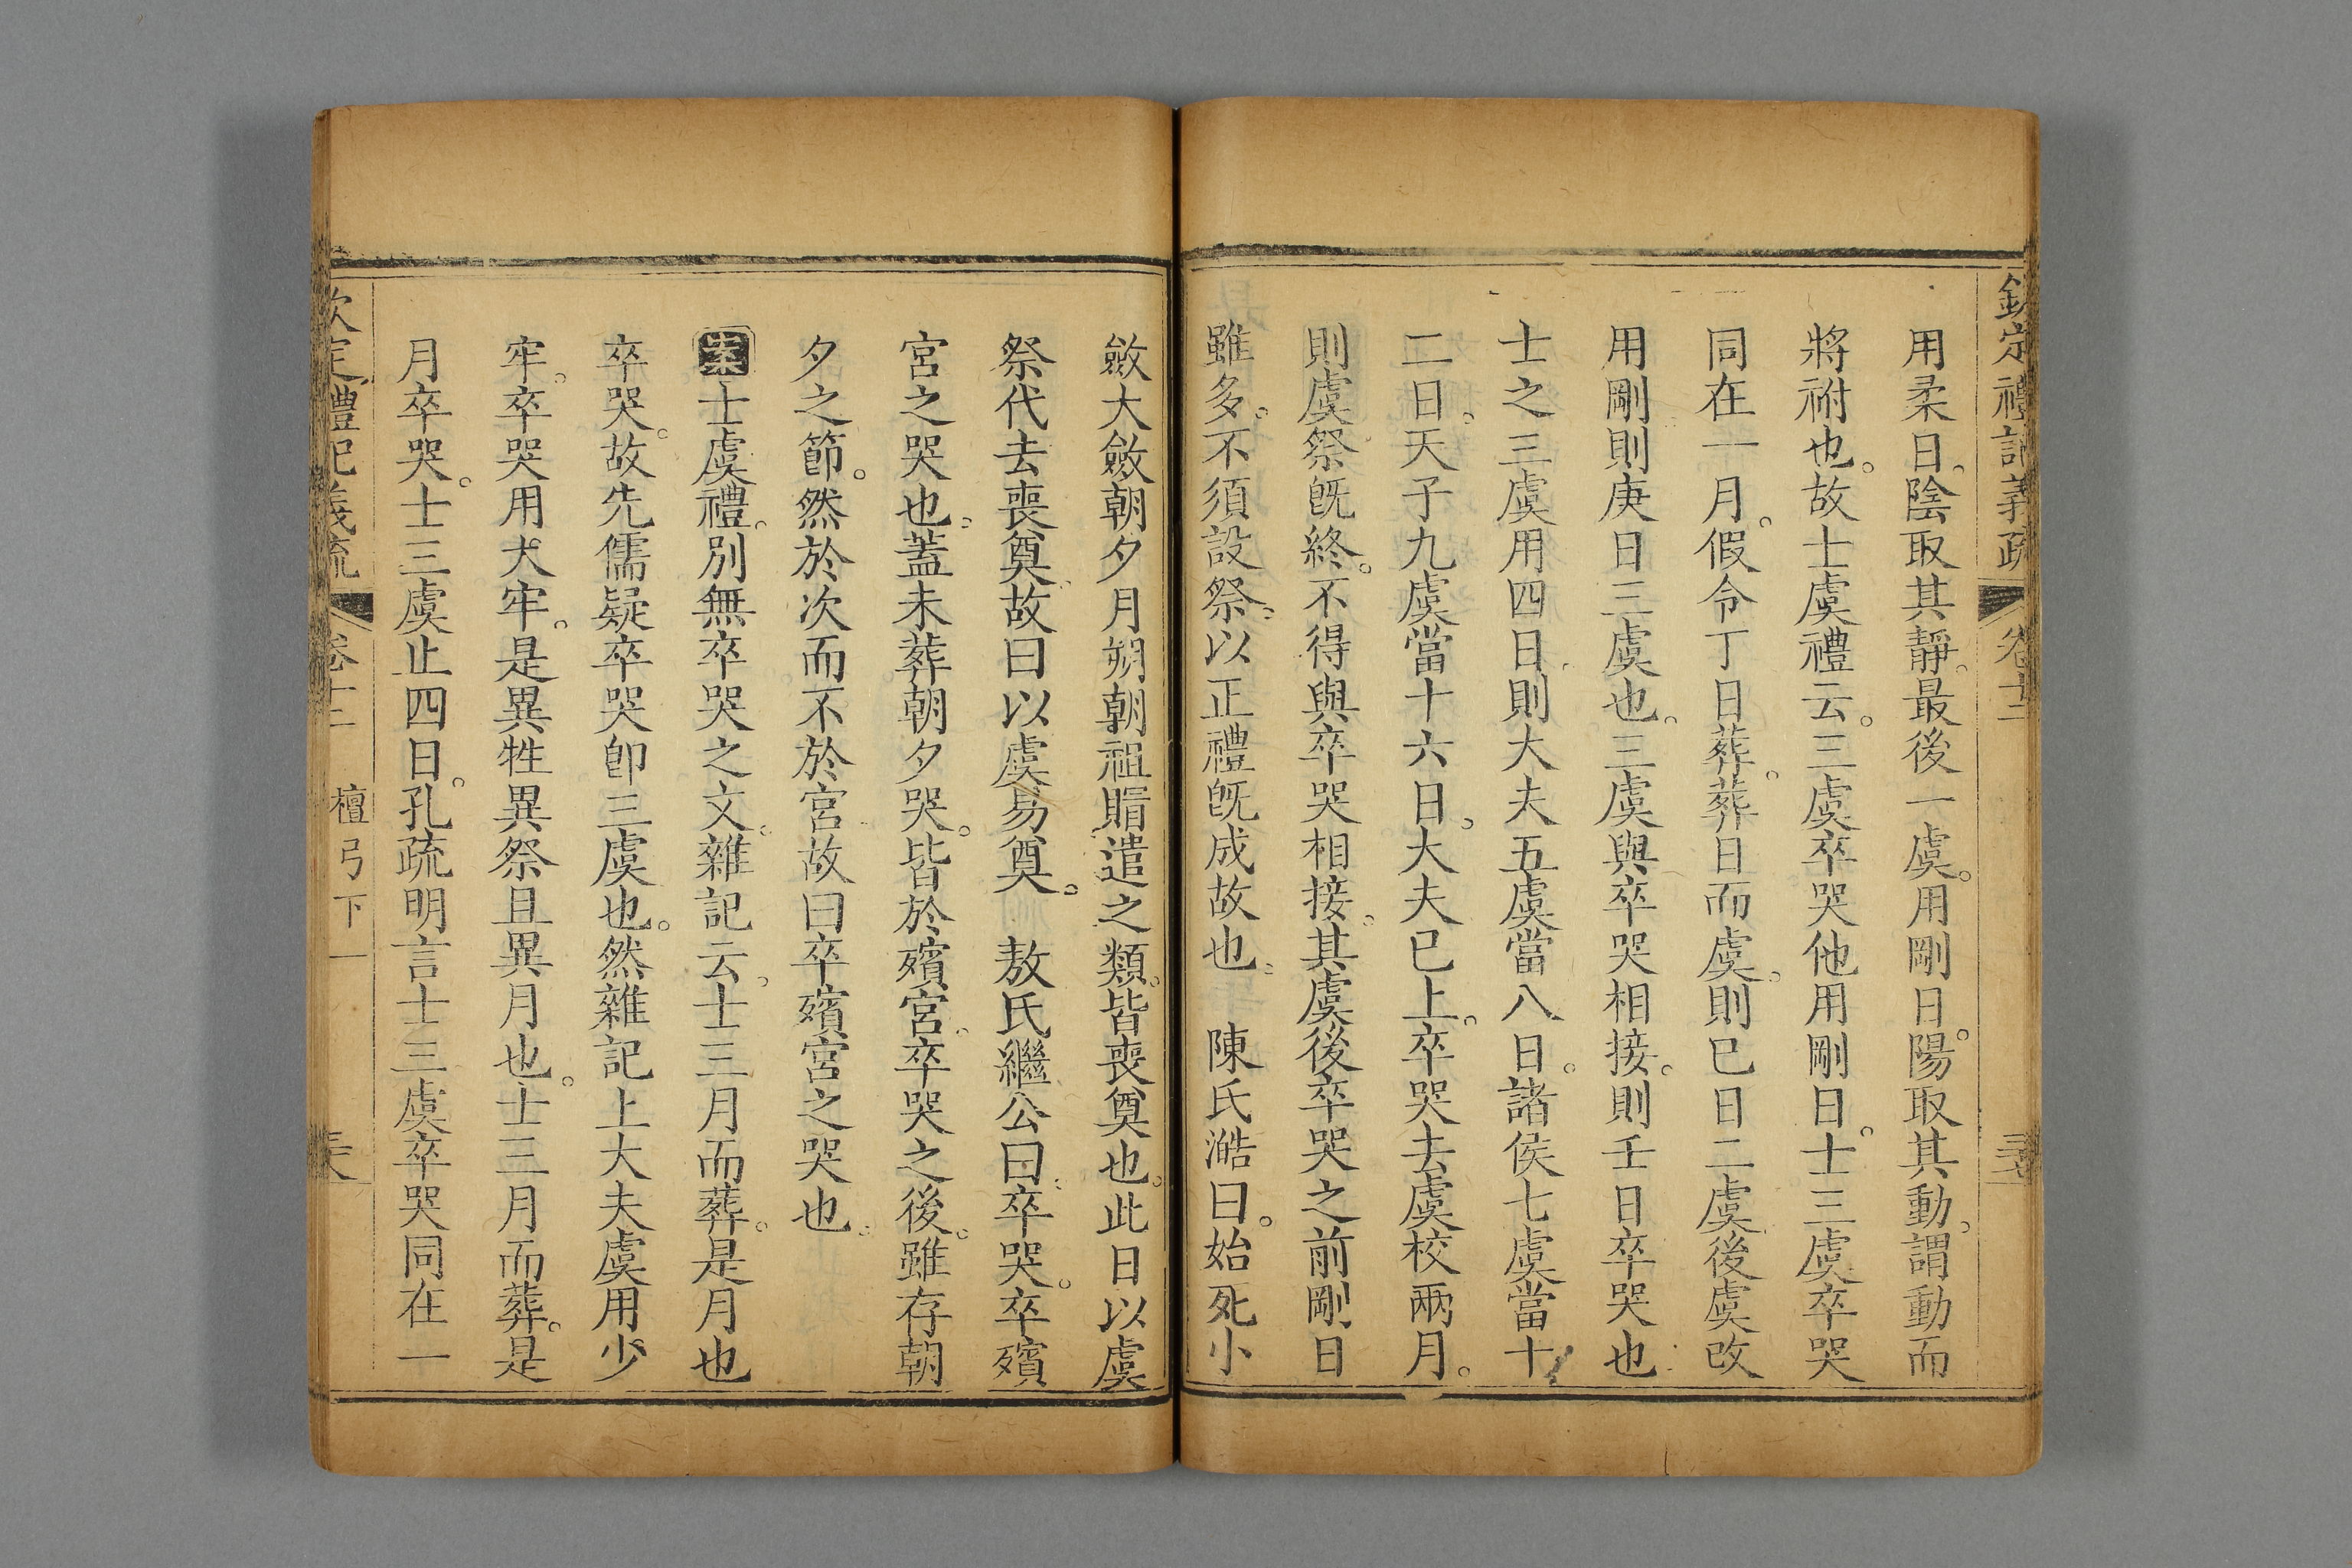 欽定禮記義疏 卷十二
用柔日。陰取其靜。最後一虞。用剛日。陽取其動。謂動而
將祔也。故士虞禮云。三虞卒哭他用剛日。士三虞卒哭
同在一月。假令丁日葬。葬日而虞。則巳日二虞後虞改
用剛則庚日三虞也。三虞與卒哭相接。則壬日卒哭也
士之三虞用四日。則大夫五虞當八日。諸侯七虞當十
二日。天子九虞當十六日。大夫巳上。卒哭去虞校兩月。
則虞祭旣終。不得與卒哭相接。其虞後卒哭之前剛日
雖多。不須設祭。以正禮旣成故也。 陳氏澔曰。始死小
斂大斂朝夕月朔朝祖賵遣之類。皆喪奠也。此日以虞
祭代去喪奠。故曰以虞易奠。 敖氏繼公曰。卒哭。卒殯
宮之哭也。蓋未葬朝夕哭。皆於殯宮。卒哭之後。雖存朝
夕之節。然於次而不於宮故曰卒殯宮之哭也。
案士虞禮。別無卒哭之文。雜記云。士三月而葬。是月也
卒哭。故先儒疑卒哭卽三虞也。然雜記上大夫虞用少
牢。卒哭用犬牢。是異牲異祭且異月也。士三月而葬。是
月卒哭。士三虞止四日。孔疏明言士三虞卒哭同在一
欽定禮記義疏 卷十二 檀弓下一